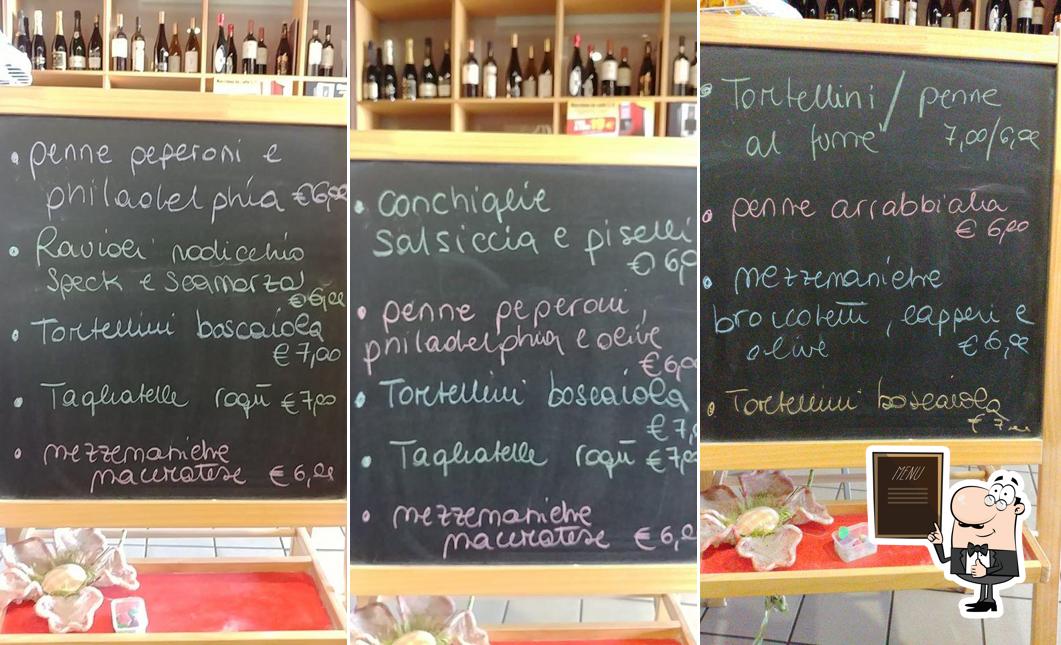 • penne peperoni e
philadelphia €6,00
• Ravioli radicchio
speck e scamorza
€6,00
• Tortellini boscaiola
€7,00
• Tagliatelle ragù €7,00
• mezzemaniche
maceratese €6,00
• conchiglie
salsiccia e piselli
€6,0
• penne peperoni,
philadelphia e olive
€6,00
• Tortellini boscaiola
€7,
• Tagliatelle ragù €7,00
• mezzemaniche
maceratese €6,0
• Tortellini / penne
al fumé 7,00/6,00
• penne arrabbiata
€6,00
• mezzemaniche
broccoletti, capperi e
olive €6,00
• Tortellini boscaiola
€7,00
MENU